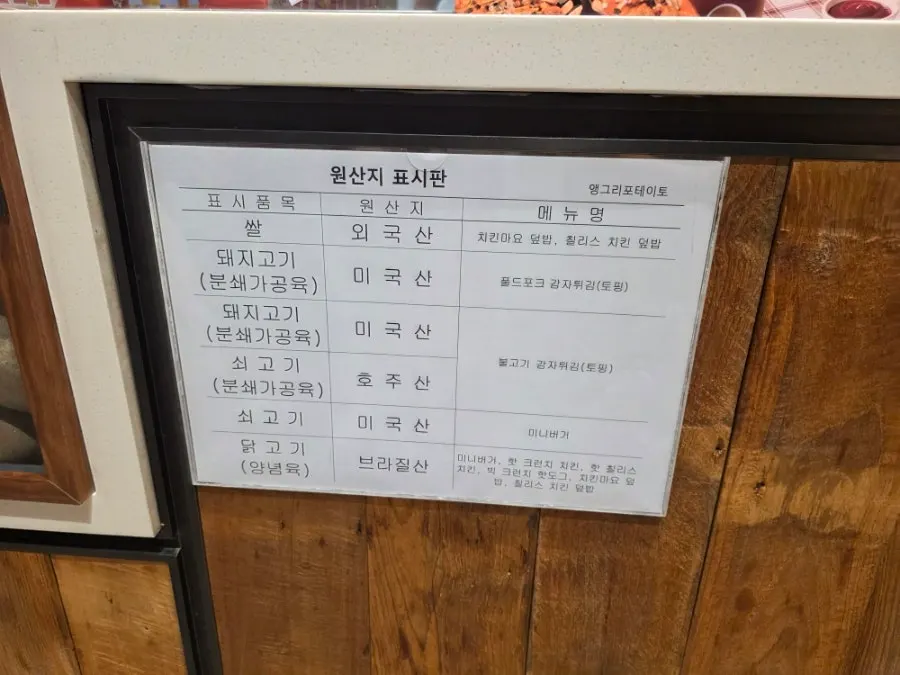 원산지 표시판
앵그리포테이토
표시품목 원산지 메뉴명
쌀 외국산 치킨마요 덮밥, 칠리스 치킨 덮밥
돼지고기
(분쇄가공육) 미국산 풀드포크 감자튀김(토핑)
돼지고기
(분쇄가공육) 미국산
불고기 감자튀김(토핑)
쇠고기
(분쇄가공육) 호주산
쇠고기 미국산 미니버거
닭고기
(양념육) 브라질산
미니버거, 핫 크런치 치킨, 핫 칠리스
치킨, 빅 크런치 핫도그, 치킨마요 덮
밥, 칠리스 치킨 덮밥